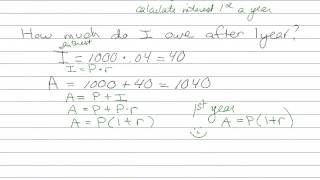 calculate interest 1st a year
How much do I owe after 1 year?
interest
I = 1000 · .04 = 40
I = P · r
A = 1000 + 40 = 1040
A = P + I
A = P + P · r
A = P(1+r)
1st year
A = P(1+r)